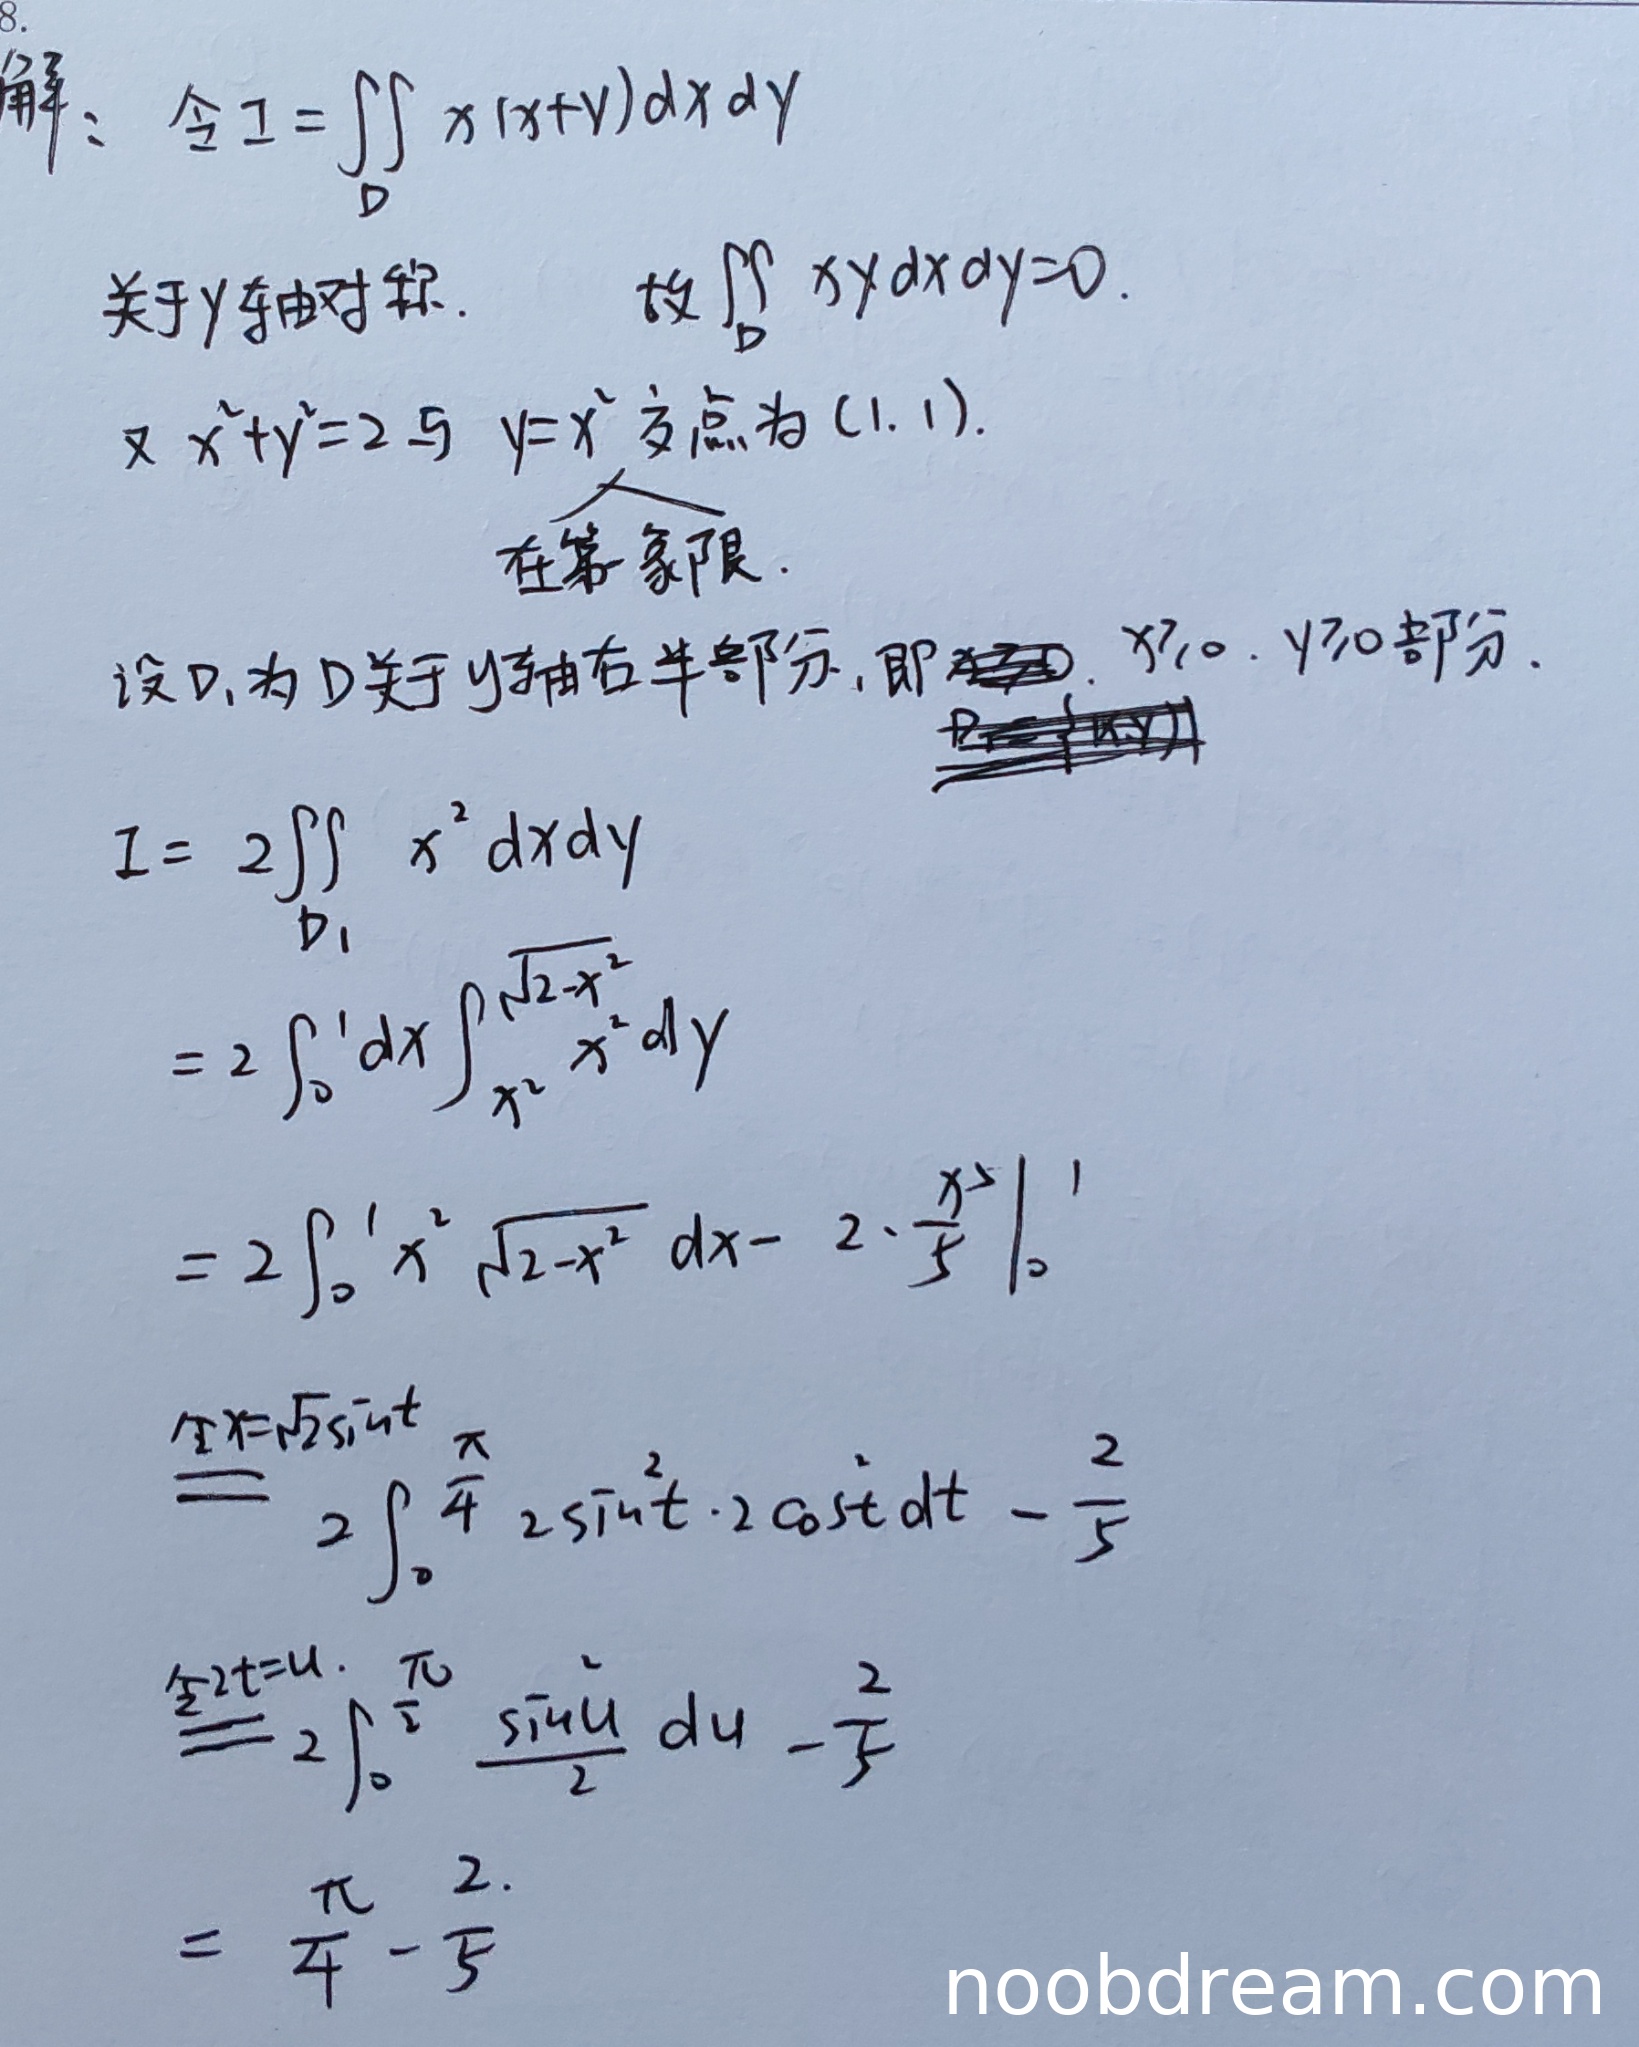 8.
解: 令I=∬_D x(x+y)dxdy
关于y轴对称. 故∬_D xydxdy=0.
又 x²+y²=2与 y=x² 交点为(1.1).
在第一象限.
设D₁为D关于y轴右半部分,即 x≥0. y≥0部分.
I= 2∬_D₁ x² dxdy
=2∫₀¹dx∫_{x²}^{√(2-x²)} x²dy
=2∫₀¹ x² √(2-x²) dx- 2·x⁵/5|₀¹
令x=√2sint
== 2∫₀^{π/4} 2sin²t·2cos²t dt - 2/5
令2t=u.
== 2∫₀^{π/2} sin²u/2 du - 2/5
= π/4 - 2/5
noobdream.com